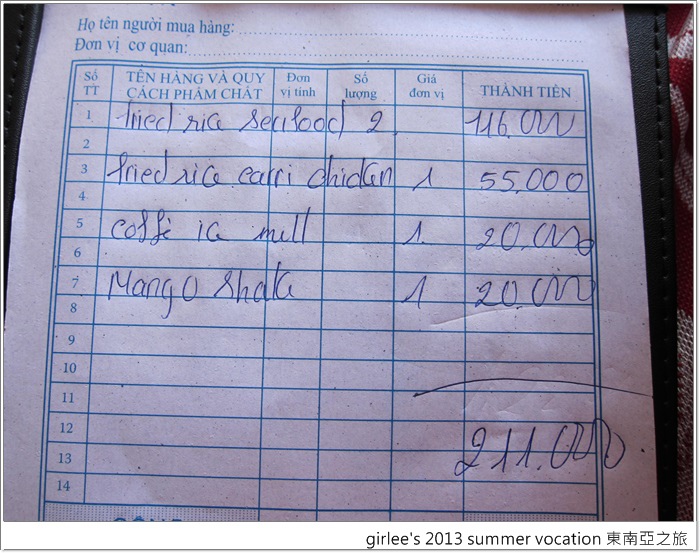 Họ tên người mua hàng:
Đơn vị cơ quan:
Số TT TÊN HÀNG VÀ QUY CÁCH PHẨM CHẤT Đơn vị tính Số lượng Giá đơn vị THÀNH TIỀN
1 fried rice seafood 2 116.000
2
3 fried rice carri chicken 1 55.000
4
5 coffè ice milk 1. 20.000
6
7 Mango shake 1 20.000
8
9
10
11
12 211.000
13
14
girlee's 2013 summer vocation 東南亞之旅